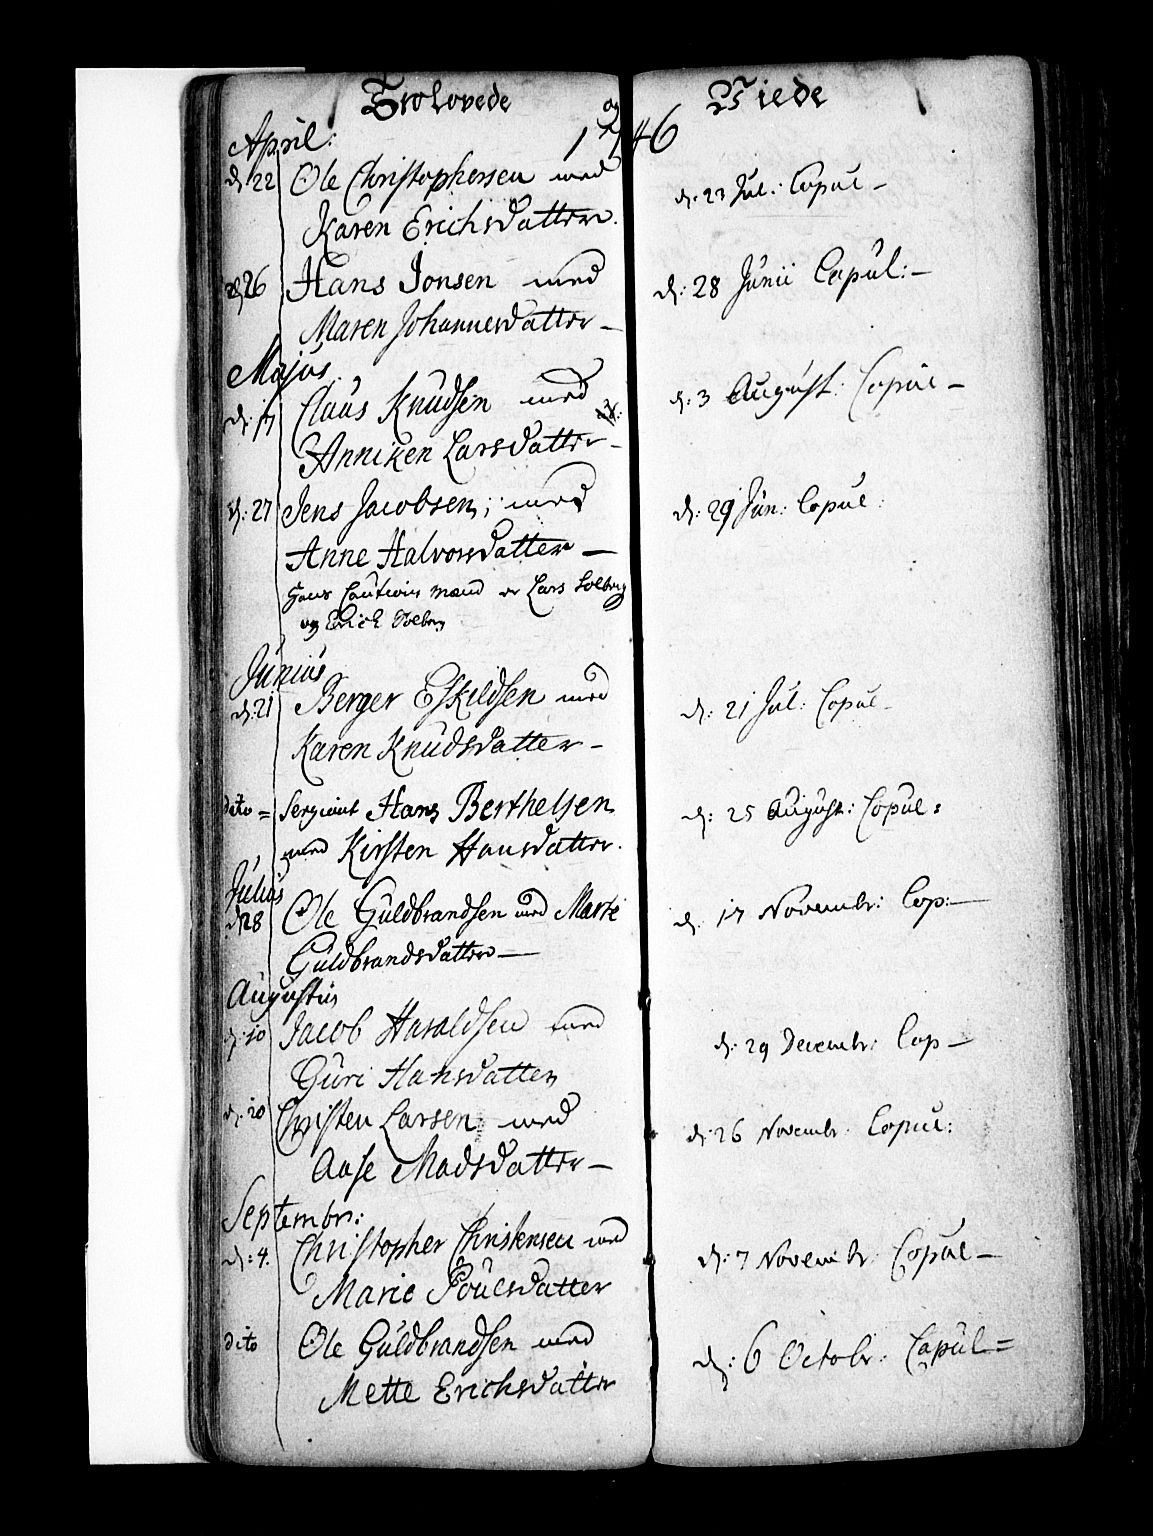 Trolovede og Viede
1746
April:
d: 22 Ole Christophersen med d: 23 Jul: Copul –
Karen Erichsdatter.
d: 26 Hans Jonsen med d: 28 Junii Copul: –
Maren Johannesdatter –
Majus
d: 17 Claus Knudsen med d: 3 August: Copul –
Anniken Larsdatter –
d: 27 Jens Jacobsen, med d: 29 Jun: Copul:
Anne Halvorsdatter –
Hans Cautions mænd er Lars Solberg
og Erick Solberg
Junius
d: 21 Berger Eskildsen med d: 21 Jul: Copul –
Karen Knudsdatter –
dito = Sergiant Hans Berthelsen d: 25 August: Copul:
med Kirsten Hansdatter.
Julius
d: 28 Ole Guldbrandsen med Marte d: 17 Novembr: Cop: –
Guldbrandsdatter –
Augustus
d: 10 Jacob Haraldsen med d: 29 Decembr: Cop –
Guri Hansdatter
d: 20 Christen Larsen med d: 26 Novembr: Copul:
Aase Madsdatter –
Septembr:
d: 4. Christopher Christensen med d: 7 Novembr: Copul –
Marie Poulsdatter
dito Ole Guldbrandsen med d: 6 Octobr: Copul =
Mette Erichsdatter